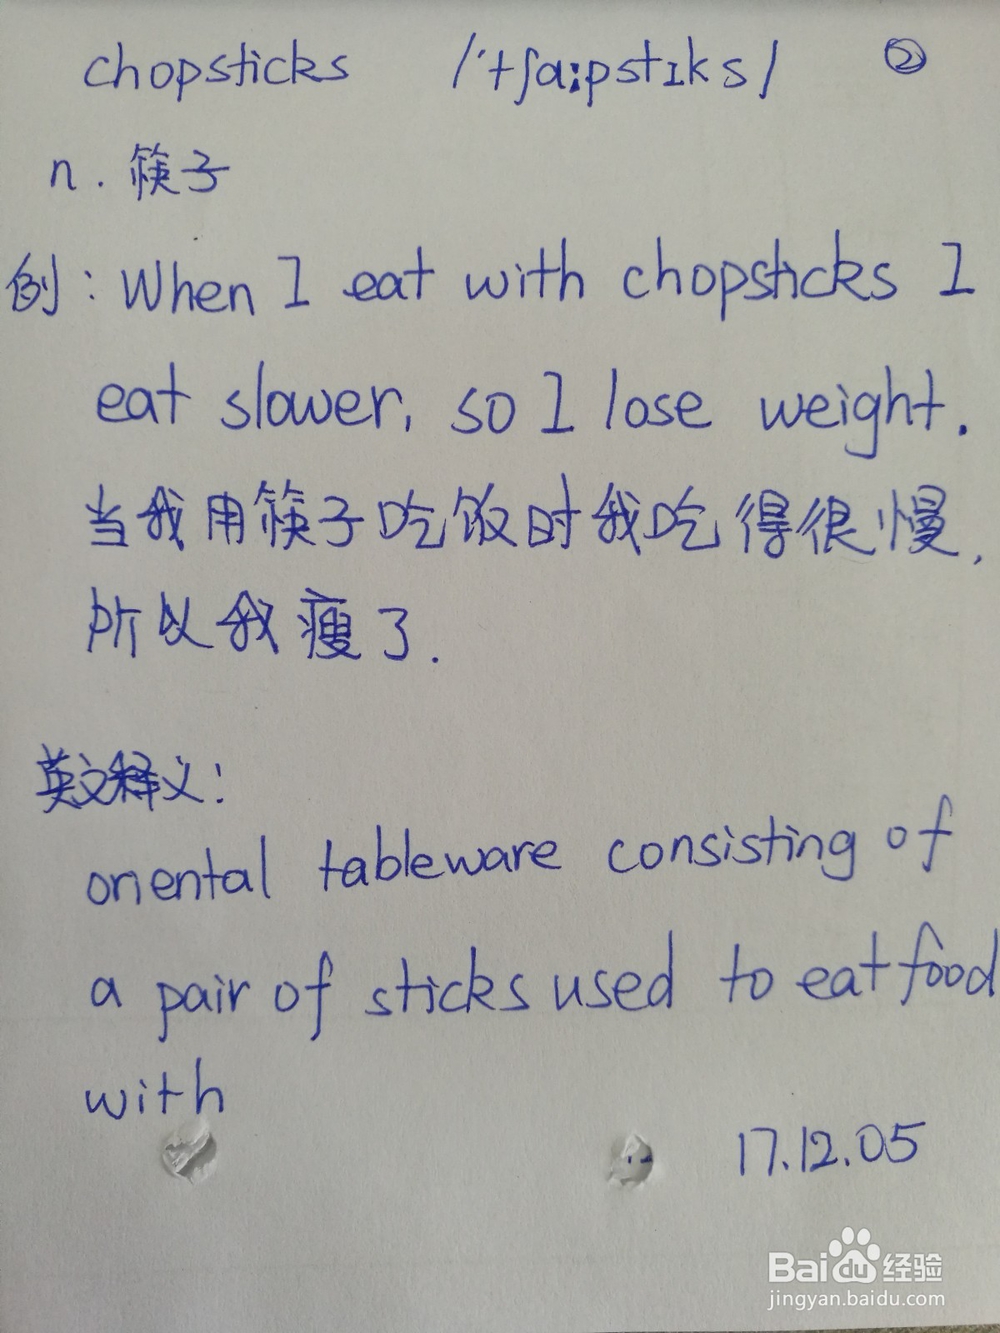 chopsticks /'tʃɑ:pstɪks/ ②
n. 筷子
例: When I eat with chopsticks I
eat slower, so I lose weight.
当我用筷子吃饭时我吃得很慢,
所以我瘦了.
英文释义:
oriental tableware consisting of
a pair of sticks used to eat food
with
17.12.05
Baidu 经验
jingyan.baidu.com